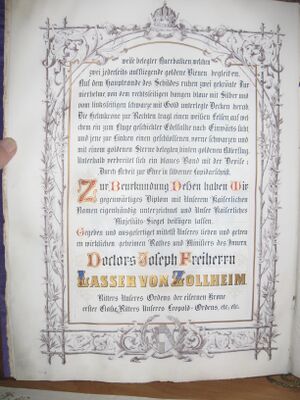 weiß belegter Querbalken welchen
zwei jederseits auffliegende goldene Bienen begleiten.
Auf dem Hauptrande des Schildes ruhen zwei gekrönte Tur
nierhelme von dem rechtsseitigen hangen blaue mit Silber und
vom linksseitigen schwarze mit Gold unterlegte Decken herab.
Die Helmkrone zur Rechten trägt einen weißen Felsen auf wel
chem ein zum Fluge geschickter Edelfalke nach Einwärts sieht
und jene zur Linken einen geschlossenen vorne schwarzen und
mit einem goldenen Sterne belegten, hinten goldenen Adlerflug.
Unterhalb verbreitet sich ein blaues Band mit der Devise:
Durch Arbeit zur Ehre in silberner Lapidarschrift.
Zur Beurkundung Dessen haben Wir
gegenwärtiges Diplom mit Unserem Kaiserlichen
Namen eigenhändig unterzeichnet und Unser Kaiserliches
Majestäts-Siegel beifügen lassen.
Gegeben und ausgefertiget mittelst Unseres lieben und getreu
en wirklichen geheimen Rathes und Ministers des Innern
Doctors Joseph Freiherrn
Lasser von Zollheim
Ritters Unseres Ordens der eisernen Krone
erster Classe, Ritters Unseres Leopold-Ordens, etc. etc.